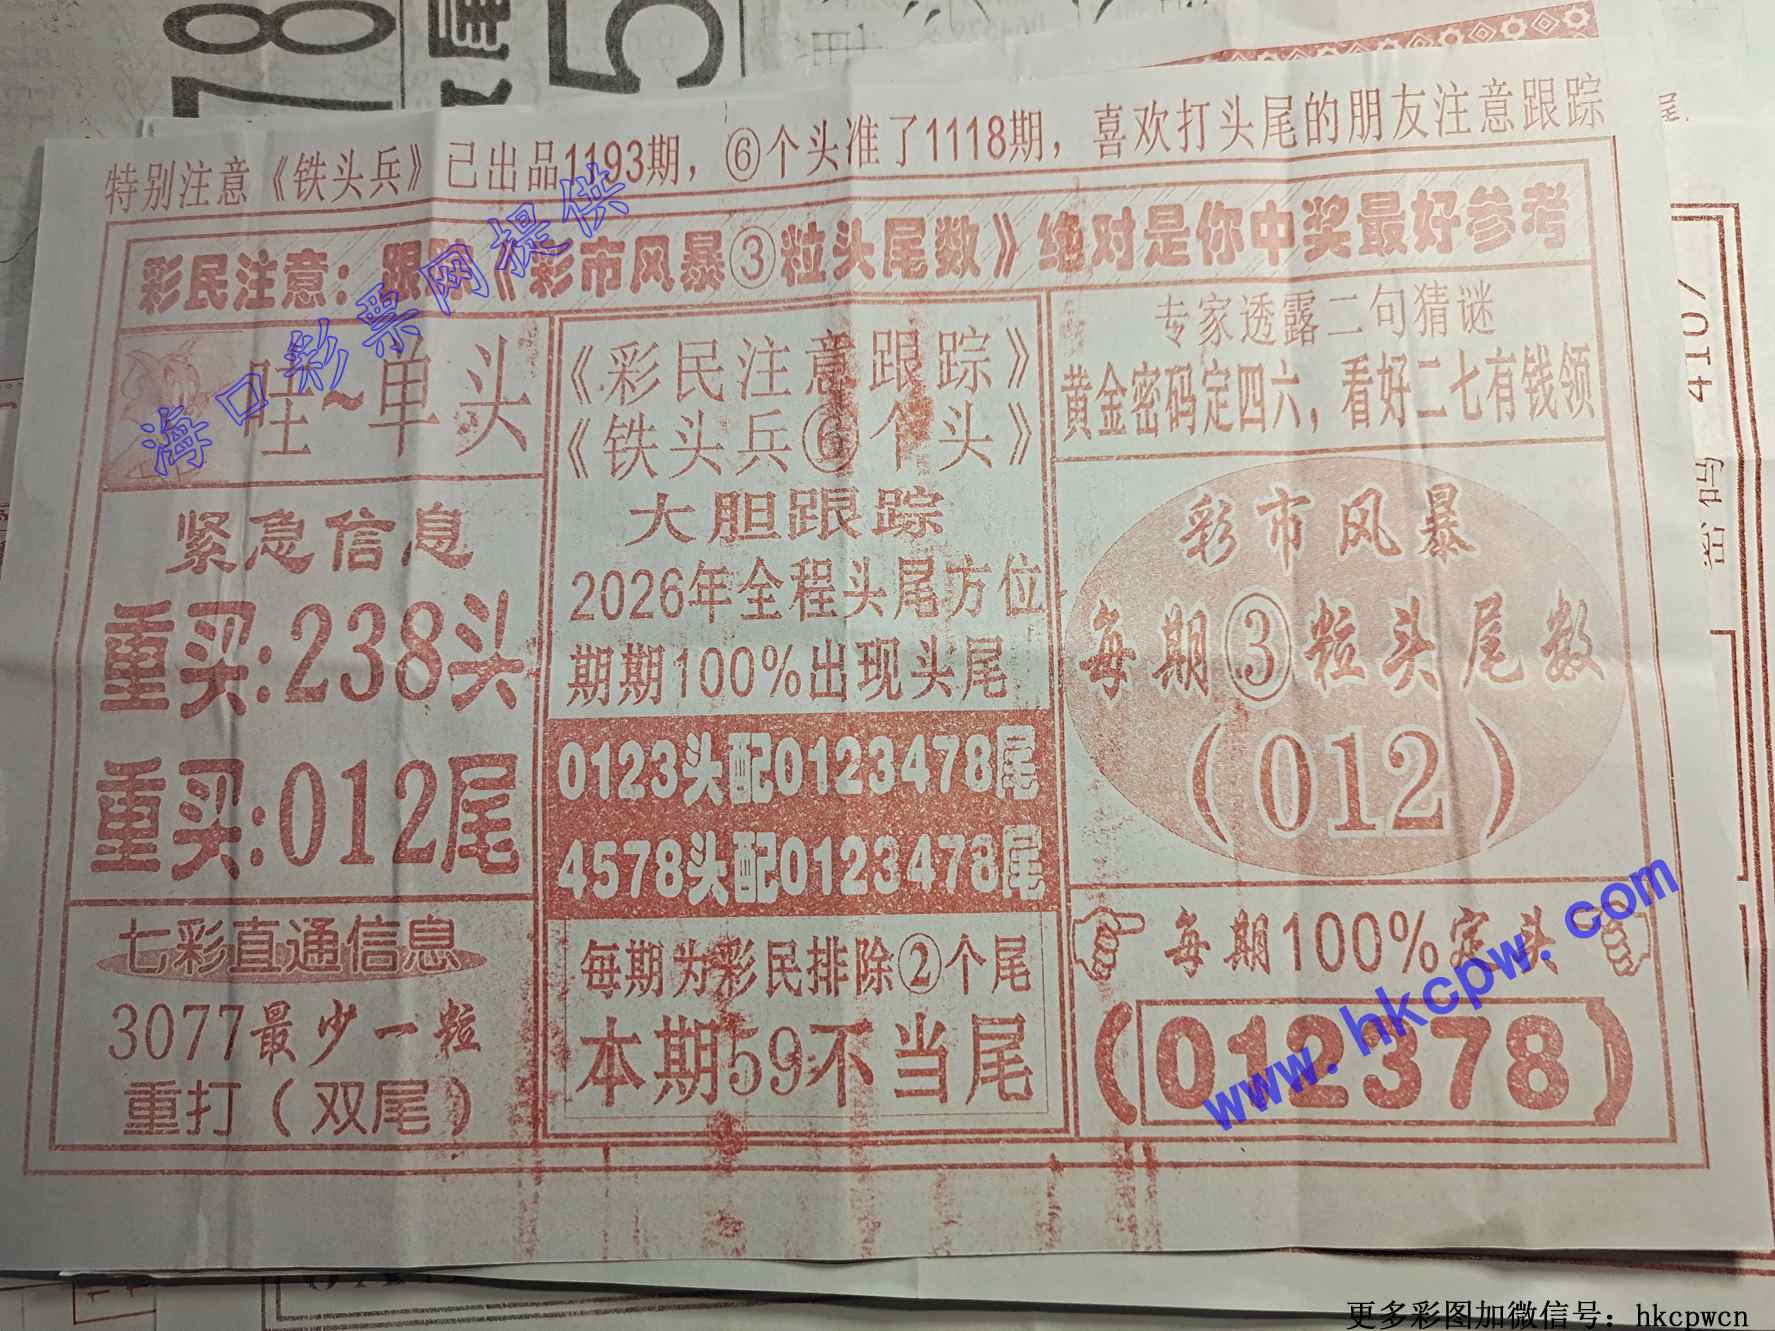 78
5
特别注意《铁头兵》已出品1193期，⑥个头准了1118期，喜欢打头尾的朋友注意跟踪
彩民注意：跟踪《彩市风暴③粒头尾数》绝对是你中奖最好参考
哇~单头
紧急信息
重买:238头
重买:012尾
七彩直通信息
3077最少一粒
重打（双尾）
《彩民注意跟踪》
《铁头兵⑥个头》
大胆跟踪
2026年全程头尾方位
期期100%出现头尾
0123头配0123478尾
4578头配0123478尾
每期为彩民排除②个尾
本期59不当尾
专家透露二句猜谜
黄金密码定四六，看好二七有钱领
彩市风暴
每期③粒头尾数
（012）
每期100%定头
（012378）
海口彩票网提供
www.hkcpw.com
更多彩图加微信号：hkcpwcn